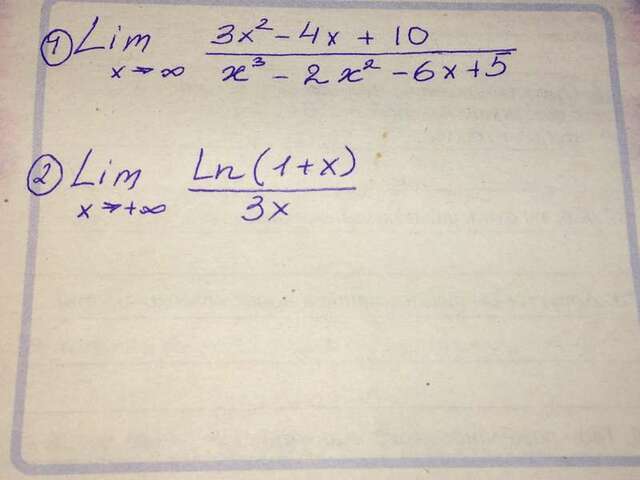 ① Lim x→∞ (3x² - 4x + 10)/(x³ - 2x² - 6x + 5)
② Lim x→+∞ Ln(1+x)/3x